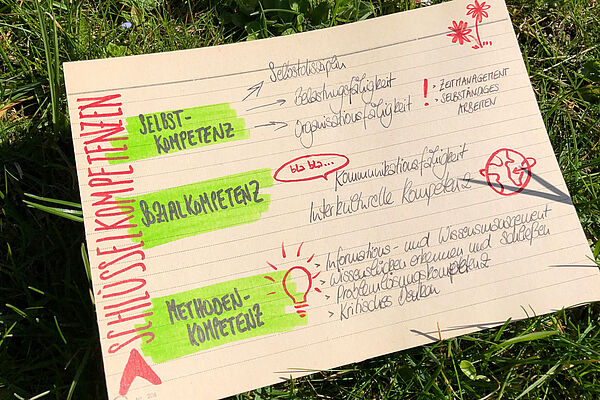 SCHLÜSSELKOMPETENZEN
SELBST-
KOMPETENZ
Selbstdisziplin
Belastungsfähigkeit
Organisationsfähigkeit
! > ZEITMANAGEMENT
> SELBSTÄNDIGES
ARBEITEN
SOZIALKOMPETENZ
bla bla...
Kommunikationsfähigkeit
Interkulturelle Kompetenz
METHODEN-
KOMPETENZ
> Informations- und Wissensmanagement
> Wissenslücken erkennen und schließen
> Problemlösungskompetenz
> Kritisches Denken